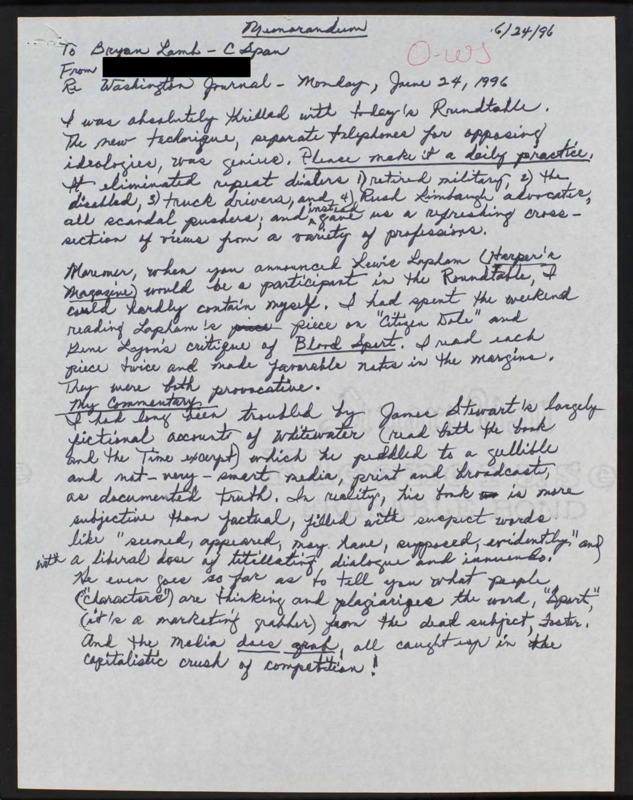 Memorandum
6/24/96
To Bryan Lamb - C Span
O-WJ
From
Re Washington Journal - Monday, June 24, 1996
I was absolutely thrilled with today's Roundtable.
The new technique, separate telephones for opposing
ideologies, was genius. Please make it a daily practice.
It eliminated repeat dialers 1) retired military, 2) the
disabled, 3) truck drivers, and 4) Rush Limbaugh advocates,
all scandal pushers; and instead gave us a refreshing cross-
section of views from a variety of professions.
Moreover, when you announced Lewis Lapham (Harper's
Magazine) would be a participant in the Roundtable, I
could hardly contain myself. I had spent the weekend
reading Lapham's piece on "Citizen Dole" and
Gene Lyon's critique of Blood Sport. I read each
piece twice and made favorable notes in the margins.
They were both provocative.
My Commentary
I had long been troubled by James Stewart's largely
fictional account of Whitewater (read both the book
and the Time excerpt) which he peddled to a gullible
and not-very-smart media, print and broadcast,
as documented truth. In reality, his book is more
subjective than factual, filled with suspect words
like "seemed, appeared, may have, supposed, evidently" and
with a liberal dose of titillating dialogue and innuendo.
He even goes so far as to tell you what people
("characters") are thinking and plagiarizes the word, "Sport,"
(it's a marketing grabber) from the dead subject, Foster.
And the media does grab, all caught up in the
capitalistic crush of competition!